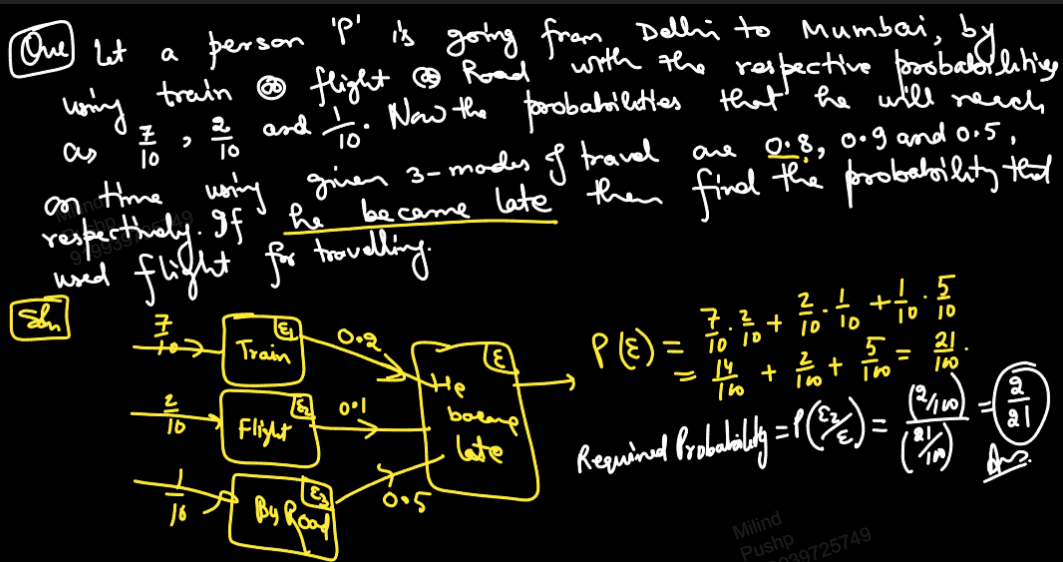 Que Let a person 'P' is going from Delhi to Mumbai, by
using train or flight or Road with the respective probabilities
as 7/10, 2/10 and 1/10. Now the probabilities that he will reach
on time using given 3-modes of travel are 0.8, 0.9 and 0.5,
respectively. If he became late then find the probability that
used flight for travelling.
Soln
7/10 Train E1 0.2
2/10 Flight E2 0.1
1/10 By Road E3 0.5
He became late E
P(E) = 7/10 · 2/10 + 2/10 · 1/10 + 1/10 · 5/10
= 14/100 + 2/100 + 5/100 = 21/100.
Required Probability = P(E2/E) = (2/100)/(21/100) = 2/21 Ans.
Milind
Pushp